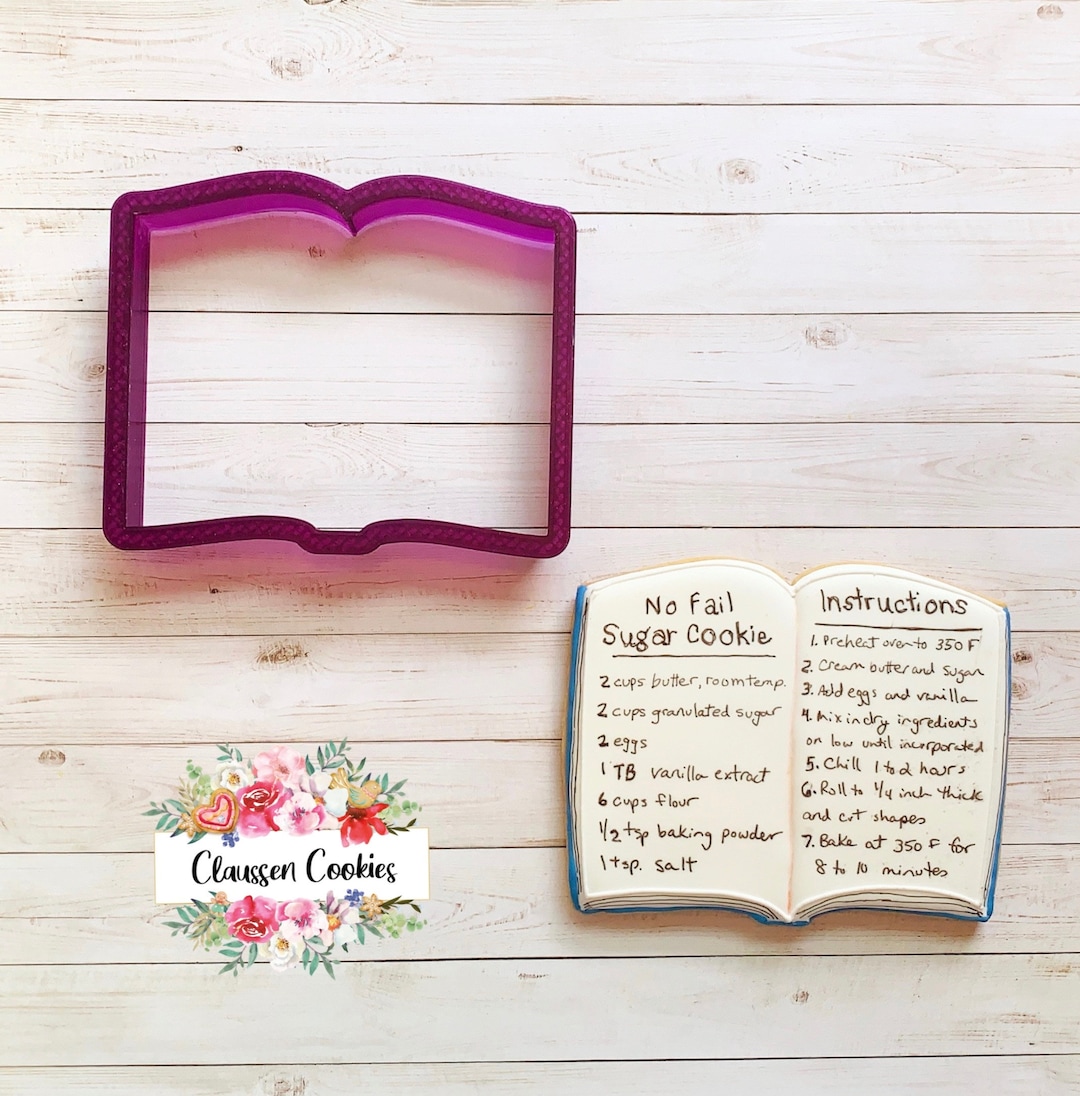 No Fail
Sugar Cookie
2 cups butter, room temp.
2 cups granulated sugar
2 eggs
1 TB vanilla extract
6 cups flour
1/2 tsp baking powder
1 tsp. salt
Instructions
1. Preheat oven to 350 F
2. Cream butter and sugar
3. Add eggs and vanilla
4. Mix in dry ingredients
on low until incorporated
5. Chill 1 to 2 hours
6. Roll to 1/4 inch thick
and cut shapes
7. Bake at 350 F for
8 to 10 minutes
Claussen Cookies